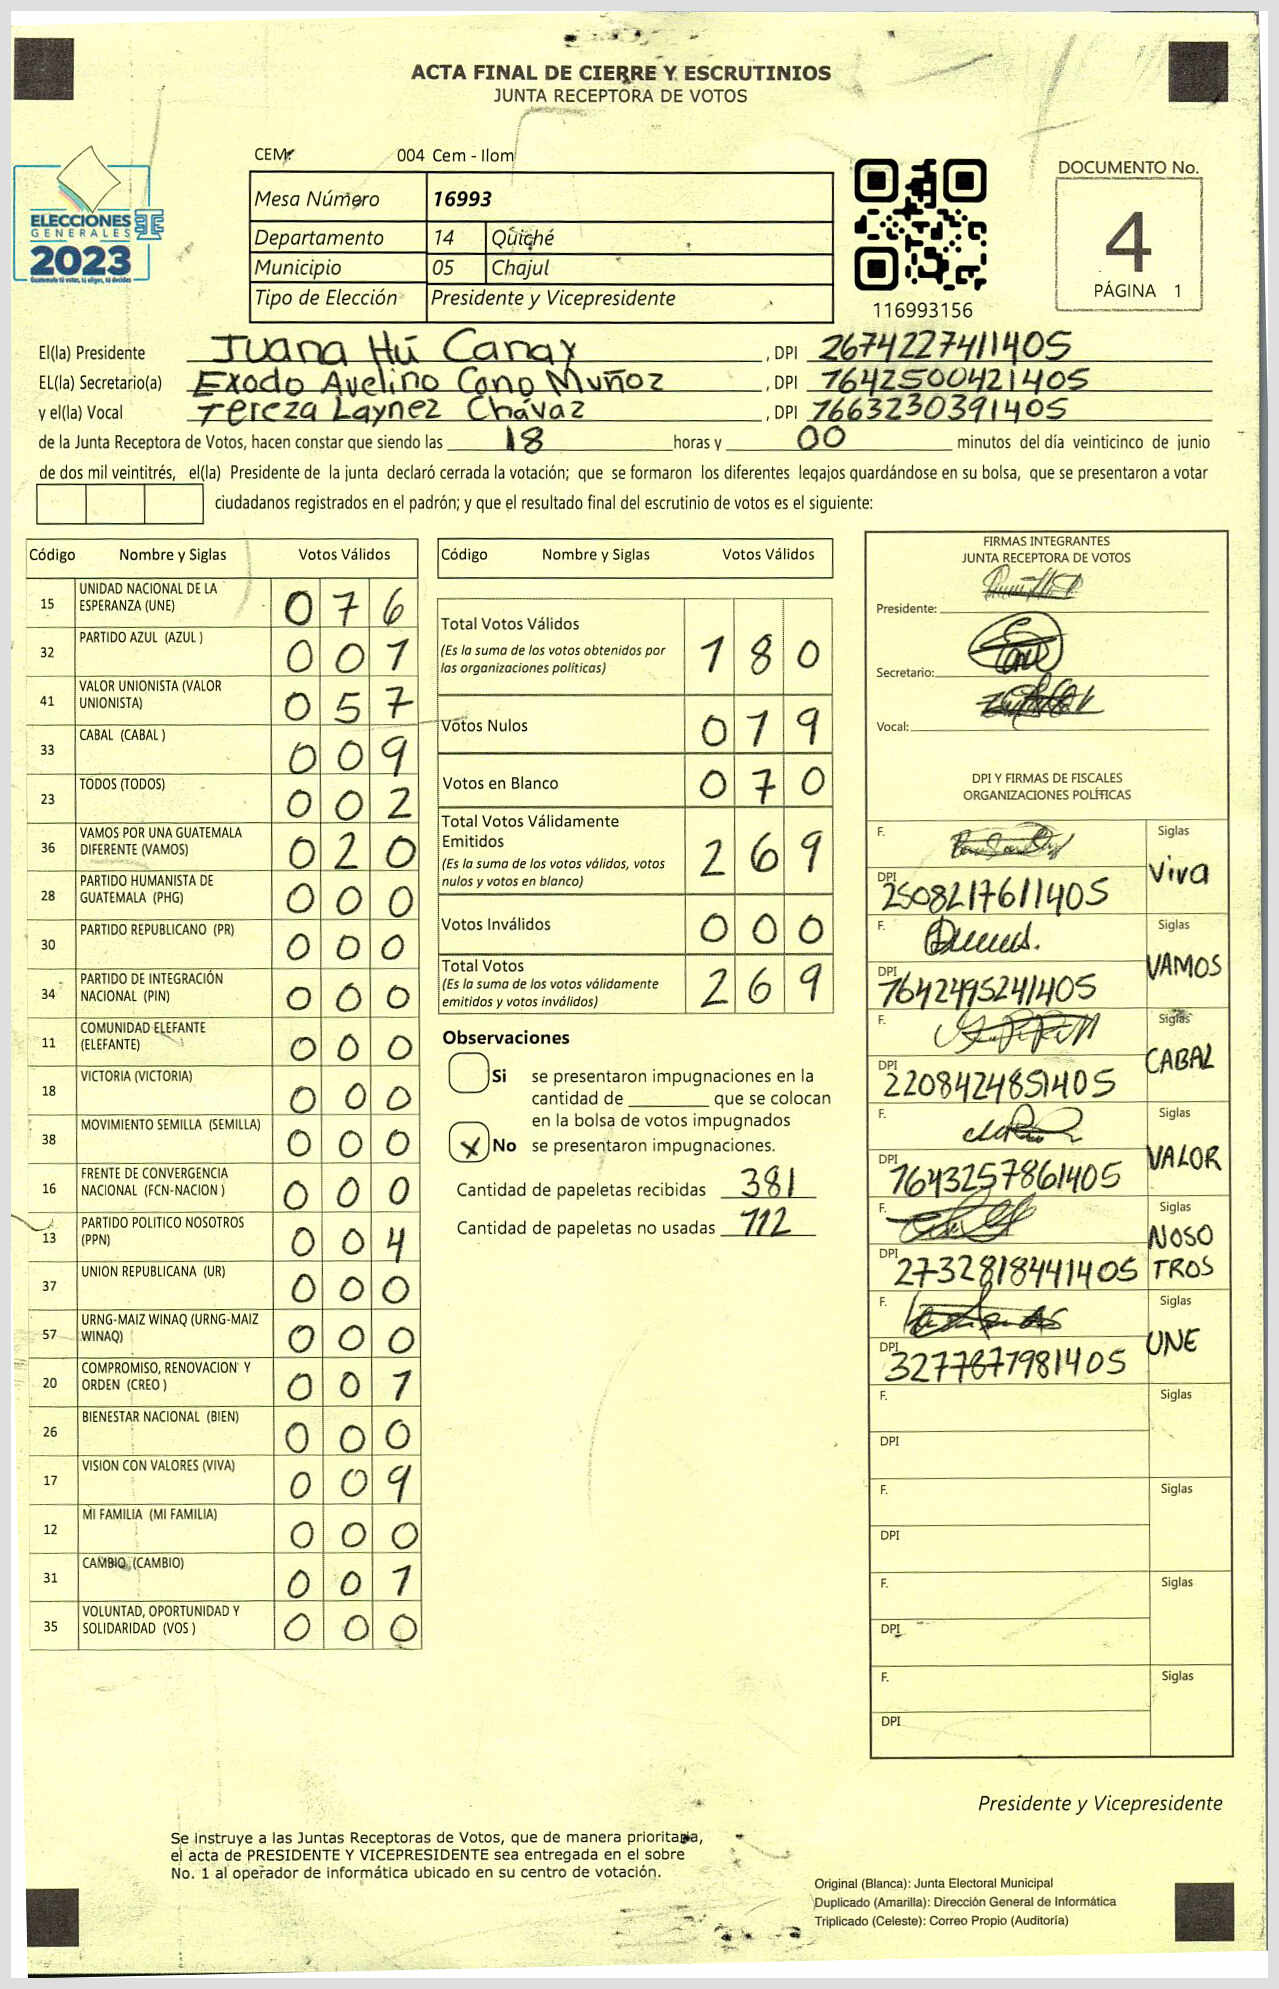 ACTA FINAL DE CIERRE Y ESCRUTINIOS
JUNTA RECEPTORA DE VOTOS
CEM: 004 Cem - Ilom
DOCUMENTO No.
4
PÁGINA 1
ELECCIONES
GENERALES
2023
Guatemala tú votas, tú eliges, tú decides
Mesa Número 16993
Departamento 14 Quiché
Municipio 05 Chajul
Tipo de Elección Presidente y Vicepresidente
116993156
El(la) Presidente Juana Hú Canay, DPI 2674227411405
EL(la) Secretario(a) Exodo Avelino Cano Muñoz, DPI 7642500421405
y el(la) Vocal Tereza Laynez Chávaz, DPI 7663230391405
de la Junta Receptora de Votos, hacen constar que siendo las 18 horas y 00 minutos del día veinticinco de junio
de dos mil veintitrés, el(la) Presidente de la junta declaró cerrada la votación; que se formaron los diferentes legajos guardándose en su bolsa, que se presentaron a votar
ciudadanos registrados en el padrón; y que el resultado final del escrutinio de votos es el siguiente:
Código Nombre y Siglas Votos Válidos
15 UNIDAD NACIONAL DE LA ESPERANZA (UNE) 076
32 PARTIDO AZUL (AZUL ) 001
41 VALOR UNIONISTA (VALOR UNIONISTA) 057
33 CABAL (CABAL ) 009
23 TODOS (TODOS) 002
36 VAMOS POR UNA GUATEMALA DIFERENTE (VAMOS) 020
28 PARTIDO HUMANISTA DE GUATEMALA (PHG) 000
30 PARTIDO REPUBLICANO (PR) 000
34 PARTIDO DE INTEGRACIÓN NACIONAL (PIN) 000
11 COMUNIDAD ELEFANTE (ELEFANTE) 000
18 VICTORIA (VICTORIA) 000
38 MOVIMIENTO SEMILLA (SEMILLA) 000
16 FRENTE DE CONVERGENCIA NACIONAL (FCN-NACION ) 000
13 PARTIDO POLITICO NOSOTROS (PPN) 004
37 UNION REPUBLICANA (UR) 000
57 URNG-MAIZ WINAQ (URNG-MAIZ WINAQ) 000
20 COMPROMISO, RENOVACION Y ORDEN (CREO ) 001
26 BIENESTAR NACIONAL (BIEN) 000
17 VISION CON VALORES (VIVA) 009
12 MI FAMILIA (MI FAMILIA) 000
31 CAMBIO (CAMBIO) 001
35 VOLUNTAD, OPORTUNIDAD Y SOLIDARIDAD (VOS ) 000
Código Nombre y Siglas Votos Válidos
Total Votos Válidos 180
(Es la suma de los votos obtenidos por
las organizaciones políticas)
Votos Nulos 019
Votos en Blanco 070
Total Votos Válidamente
Emitidos 269
(Es la suma de los votos válidos, votos
nulos y votos en blanco)
Votos Inválidos 000
Total Votos 269
(Es la suma de los votos válidamente
emitidos y votos inválidos)
Observaciones
Si se presentaron impugnaciones en la
cantidad de ________ que se colocan
en la bolsa de votos impugnados
x No se presentaron impugnaciones.
Cantidad de papeletas recibidas 381
Cantidad de papeletas no usadas 112
FIRMAS INTEGRANTES
JUNTA RECEPTORA DE VOTOS
Presidente:
Secretario:
Vocal:
DPI Y FIRMAS DE FISCALES
ORGANIZACIONES POLÍTICAS
F. Siglas
DPI 2508217611405 Viva
F. Siglas
DPI 7642495241405 VAMOS
F. Siglas
DPI 2208424851405 CABAL
F. Siglas
DPI 7643257861405 VALOR
F. Siglas
DPI 2732818441405 NOSOTROS
F. Siglas
DPI 3277877981405 UNE
F. Siglas
DPI
F. Siglas
DPI
F. Siglas
DPI
F. Siglas
DPI
Presidente y Vicepresidente
Se instruye a las Juntas Receptoras de Votos, que de manera prioritaria,
el acta de PRESIDENTE Y VICEPRESIDENTE sea entregada en el sobre
No. 1 al operador de informática ubicado en su centro de votación.
Original (Blanca): Junta Electoral Municipal
Duplicado (Amarilla): Dirección General de Informática
Triplicado (Celeste): Correo Propio (Auditoría)